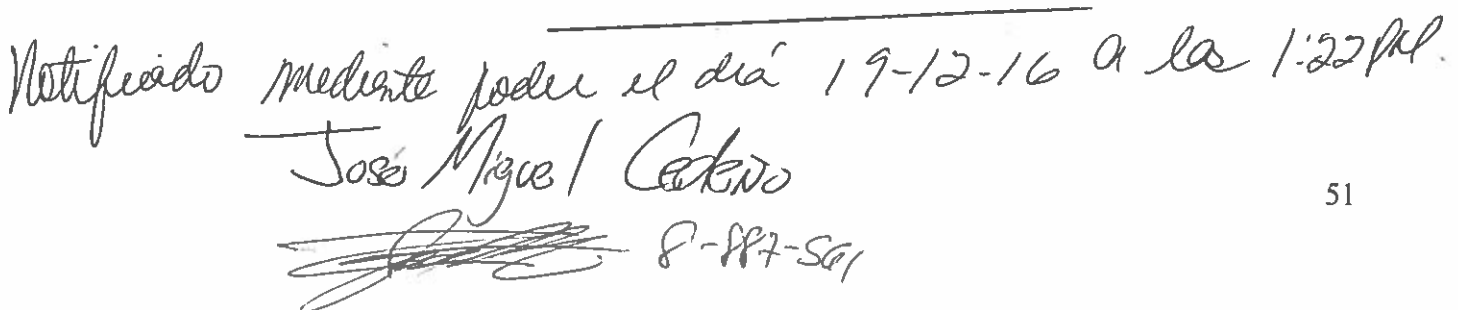 Notificado mediante poder el día 19-12-16 a las 1:22 PM.
José Miguel Cedeño
51
8-887-561